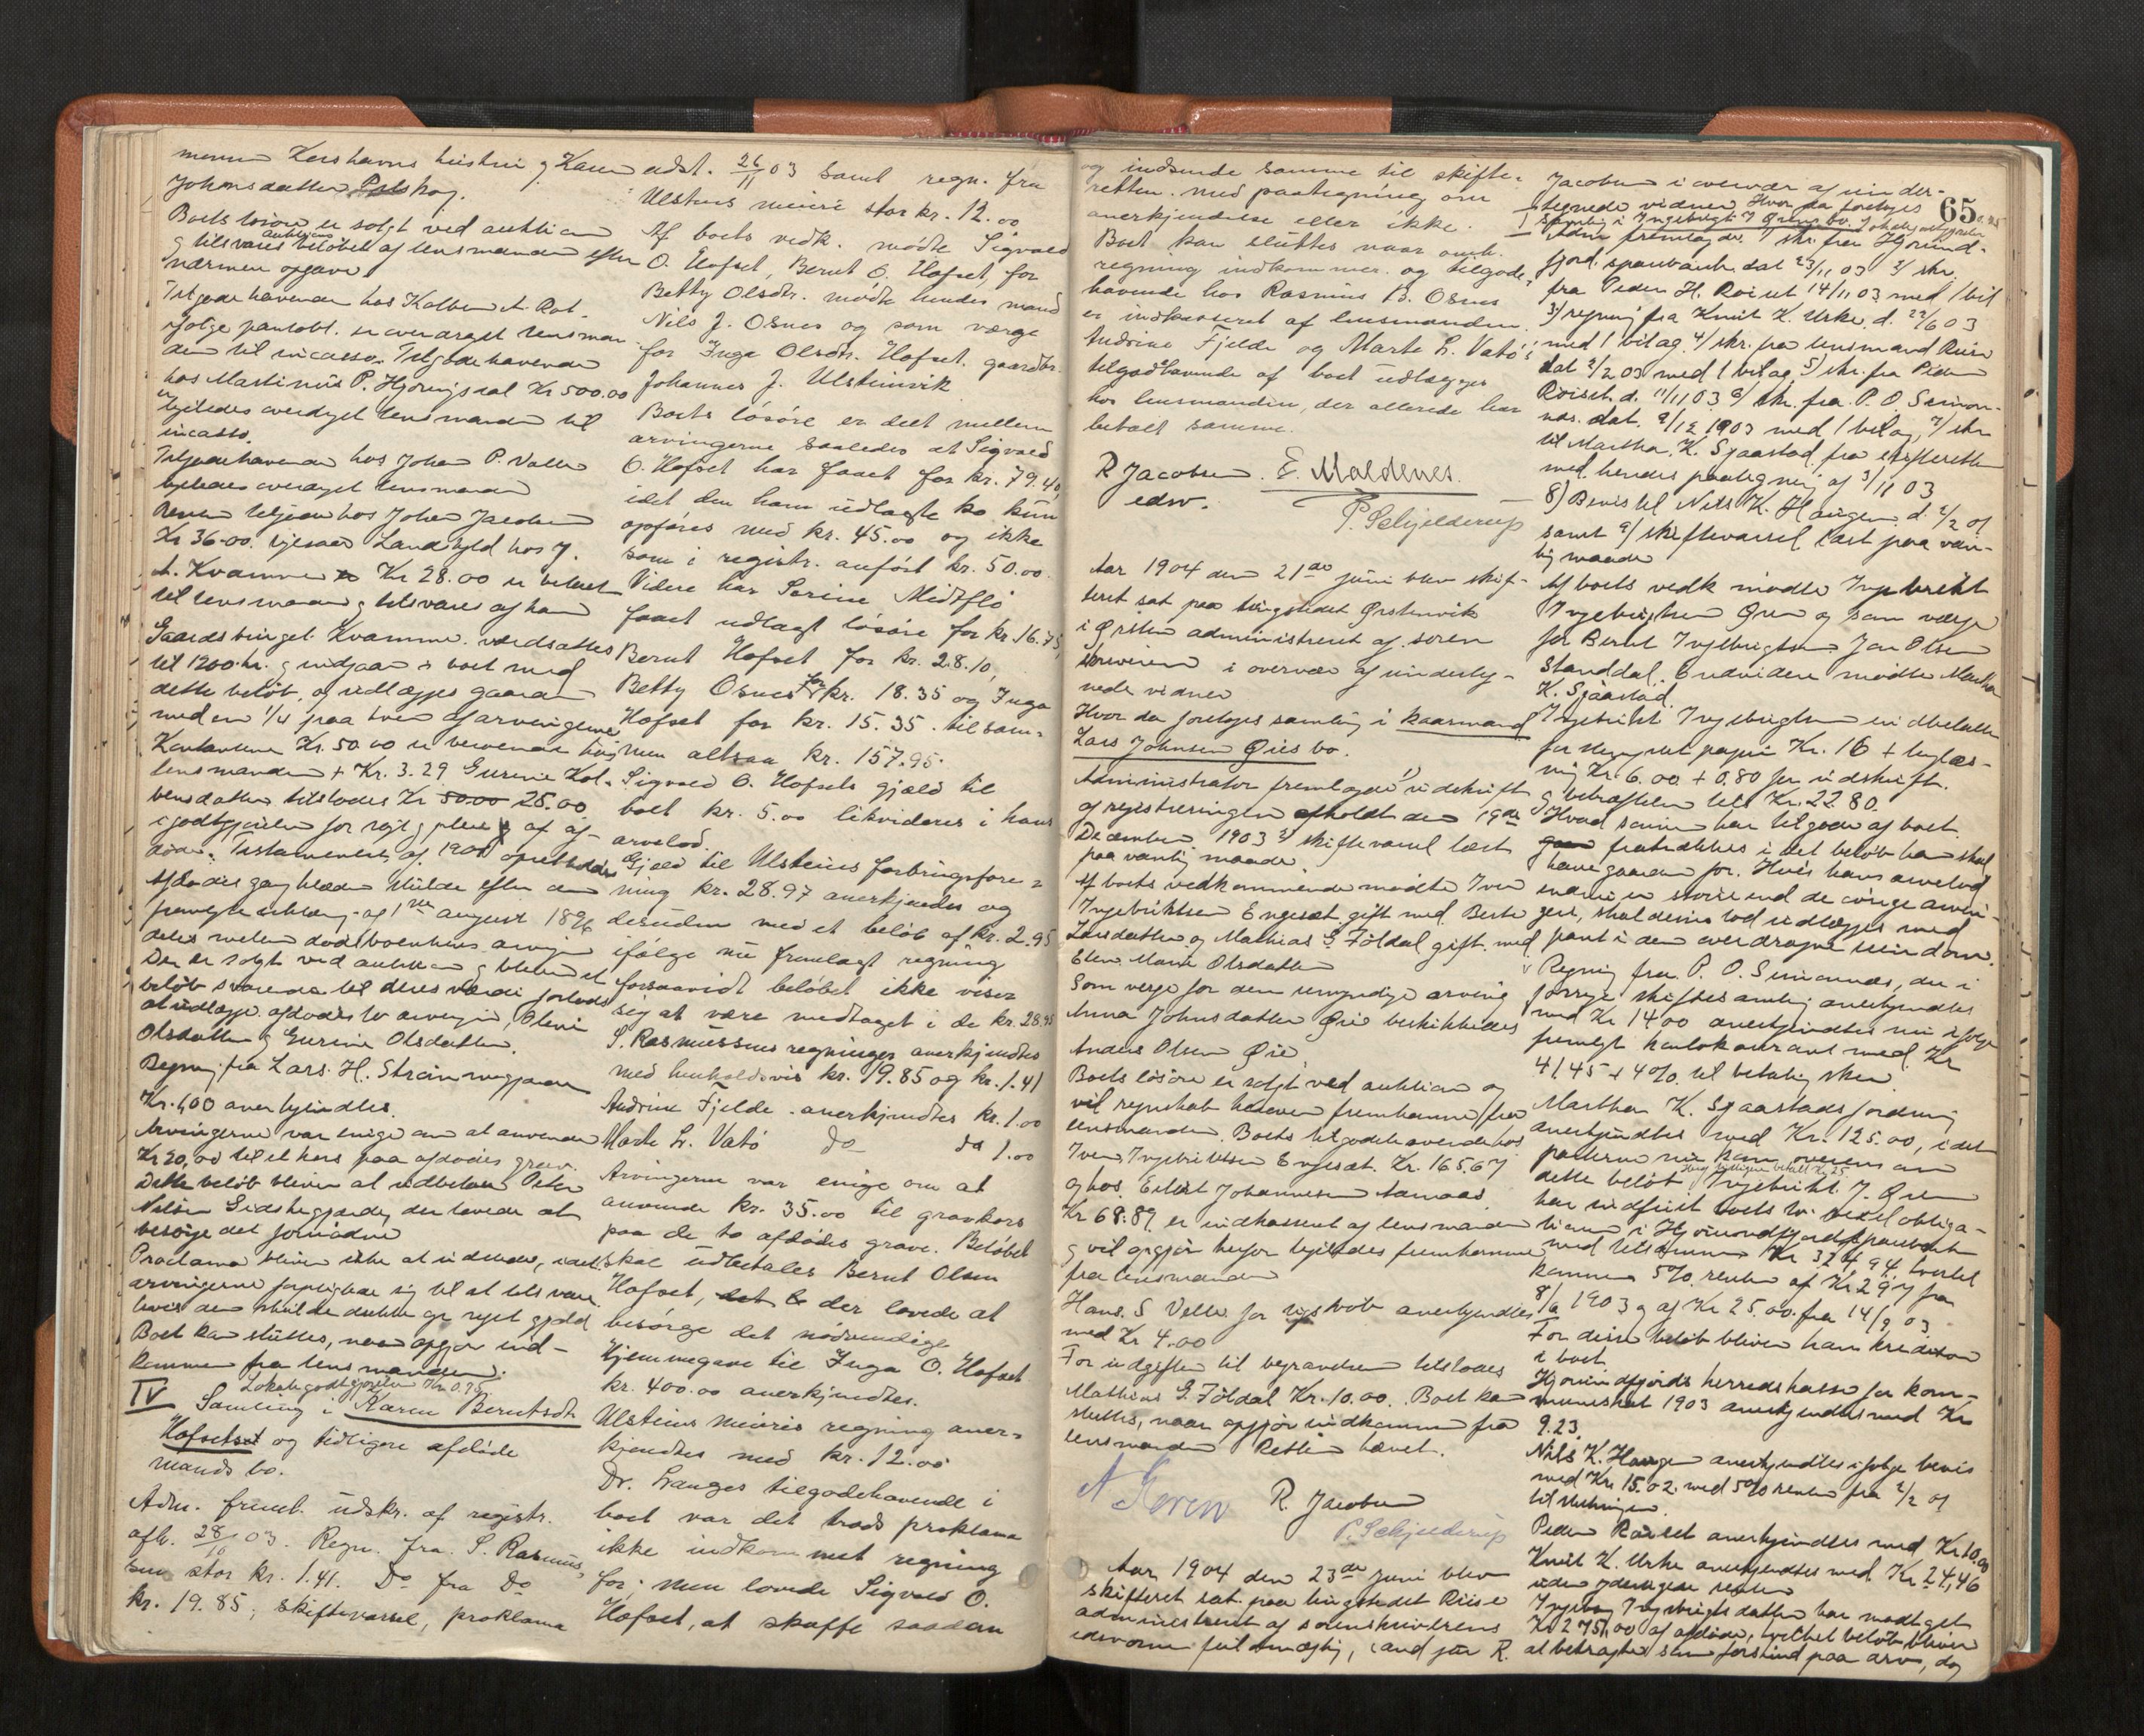 menn Korshavns hustru og Karen
Johansdatter Pilskog.
Boets løsøre er solgt ved auktion
og tilsvares auktionsbeløbet af lensmanden efter
nærmere opgave.
Tilgodehavende hos Kolben A. Rot-
ifølge pantobl. er overdraget lensman
den til incasso. Tilgodehavende
hos Martinus P. Hjorungdal Kr 500.00
ligeledes overdraget lensmanden til
incasso.
Tilgodehavende hos Johan P. Valle
ligeledes overdraget lensmanden
Renter tilgode hos Johan Jacobsen
Kr 36.00. ligesaa Landskyld hos J.
A. Kvamme Kr 28.00 er betalt
til lensmanden og tilsvares af ham
Gaardsbruget Kvamme værdsattes
til 1200 kr. og indgaar i boet med
dette beløb, og udlægges gaarden
med en 1/4 paa hver af arvingerne
Kontanterne Kr. 50.00 er beroende hos
lensmanden + Kr. 3.29 Gurine Kol-
bensdatter tilstodes Kr 50.00 25.00
i godtgjørelse for røgt og pleie af af-
døde. Testamentet af 1900 opretholdes
Afdødes gangklæder skulde efter den
fremlagte erklæring af 1ste august 1896
deles mellem dødsboenhens arvinger
Den er solgt ved auktion og bliver et
beløb svarende til deres værdi forlods
at udlægge afdødes to arvinger, Oline
Olsdatter og Gurine Olsdatter.
Regning fra Lars H. Strømmegjerde
Kr. 1,00 anerkjendtes.
Arvingerne var enige om at anvende
Kr 20,00 til et kors paa afdødes grav.
Dette beløb bliver at udbetale Peter
Nilsen Gidskegjerde, der lovede at
besørge det fornødne
Proclama bliver ikke at udstede, idet
arvingerne forpligter sig til at tilsvare
hvis der skulde dukke op nogen gjæld
Boet kan sluttes, naar opgjør ind-
kommer fra lensmanden.
Lokalegodtgjørelse Kr. 0.95
IV Samling i Karen Berntsdt.
Hofsetset og tidligere afdøde
mands bo.
Adm. freml. udskr. af registr.
afh. 28/10 03. Regn. fra S. Rasmus-
sen stor kr. 1.41. Do fra Do
kr. 19.85; skiftevarsel, proklama
udst. 26/11 03 samt regn. fra
Ulsteins meieri stor kr. 12.00
Af boets vedk. mødte Sigvald
O. Hofset, Bernt O. Hofset, for
Betty Olsdtr. mødte hendes mand
Nils J. Osnes og som værge
for Inga Olsdtr. Hofset gaardbr.
Johannes J. Ulsteinvik
Boets løsøre er delt mellem
arvingerne saaledes at Sigvald
O. Hofset har faaet for kr. 79.40,
idet den ham udlagte ko kun
opføres med kr. 45.00 og ikke
som i registr. anført kr. 50.00.
Videre har Serine Midtflø
faaet udlagt løsøre for kr. 16.75,
Bernt Hofset for kr. 28.10,
Betty Osnes for kr. 18.35 og Inga
Hofset for kr. 15.35. tilsam-
men altsaa kr. 157.95.
Sigvald O. Hofsets gjæld til
boet kr. 5.00 likvideres i hans
arvelod.
Gjæld til Ulsteins forbrugsfore-
ning kr. 28.97 anerkjendes og
desuden med et beløb af kr. 2.95
ifølge nu fremlagt regning
forsaavidt beløbet ikke viser
sig at være medtaget i de kr. 28.95
S. Rasmussens regninger anerkjendtes
med henholdsvis kr. 19.85 og kr. 1.41
Andrine Fjelde anerkjendtes kr. 1.00
Marte L. Vatø do do 1.00
Arvingerne var enige om at
anvende kr. 35.00 til gravkors
paa de to afdødes grave. Beløbet
skal udbetales Bernt Olsen
Hofset, det b der lovede at
besørge det nødvendige
Hjemmegave til Inga O. Hofset
kr. 400.00 anerkjendtes.
Ulsteins meieris regning aner-
kjendtes med kr. 12.00
Dr. Langes tilgodehavende i
boet var det trods proklama
ikke indkommet regning
for; men lovede Sigvald O.
Hofset, at skaffe saadan
og indsende samme til skifte-
retten med paategning om
anerkjendelse eller ikke.
Boet kan sluttes naar omk.
regning indkommer. og tilgode-
havende hos Rasmus B. Osnes
er indkasseret af lensmanden.
Andrine Fjelde og Marte L. Vatø's
tilgodehavende af boet udlægges
hos lensmanden, der allerede har
betalt samme.
R Jacobsen E. Maldenes.
edsv. P. Schjelderup
Aar 1904 den 21de juni blev skif-
teret sat paa tingstedet Ørstenvik
i Ørsten administreret af soren
skriveren i overvær af underteg-
nede vidner
Hvor da foretoges samling i kaarmand
Lars Johnsen Øies bo.
Administrator fremlagde 1) udskrift
af registreringen afholdt den 19de
December 1903 2) skiftevarsel læst
paa vanlig maade.
Af boets vedkommende mødte Iver
Ingebriktsen Engeset gift med Berte
Larsdatter og Mathias G. Føldal gift med
Elen Marie Olsdatter
Som verge for den umyndige arving
Anna Johnsdatter Øie beskikkedes
Anders Olsen Øie.
Boets løsøre er solgt ved auktion og
vil regnskab herover fremkomme fra
lensmanden. Boets tilgodehavende hos
Iver Ingebriktsen Engeset. Kr. 165.67
og hos Erlist Johannesen Aamaas
Kr 68.89 er indkasseret af lensmanden
og vil opgjør herfor ligeledes fremkomme
fra lensmanden
Hans S Velle for ligskab anerkjendtes
med Kr 4.00
For udgifter til begravelsen tilstodes
Mathias G. Føldal Kr. 10.00. Boet kan
sluttes, naar opgjør indkommer fra
lensmanden Retten hævet.
R. Jacobsen
P. Schjelderup
Aar 1904 den 23de juni blev
skifteret sat paa tingstedet Riise
administreret af sorenskriverens
edsvorne fuldmægtig, cand jur R.
65
Jacobsen i overvær af under-
tegnede vidner Hvor da foretoges
I samling i Ingebrigt J Ørens bo.
Adm fremlagde 1) skr. fra Hjørund-
fjord sparebank dat 23/11 03 2) skr.
fra Peder H. Roiset 14/11 03 med 1 bil
3) regning fra Knut K. Urke d. 22/6 03
med 1 bilag 4) skr. fra lensmand Riise
dat 2/2 03 med 1 bilag 5) skr. fra Peder
Roiset d. 11/11 03 6) skr. fra P. O Simon-
næs dat. 9/12 1903 med 1 bilag, 7) skr
til Martha K. Sjaastad fra skifteretten
med hendes paategning af 3/11 03
8) Bevis til Nils K. Haugen d. 2/2 01
samt 9) skiftevarsel læst paa van-
lig maade
Af boets vedk mødte Ingebrikt
Ingebrigtsen Øren og som værge
for Bernt Ingebrigtsen Jon Olsen
Standdal. Endvidere mødte Martha
K. Sjaastad.
Ingebrikt Ingebrigtsen udbetalte
for stemplet papir Kr. 16 + tinglæs-
ning Kr. 6.00 + 0.80 for udskrift.
og bekræftelse tils Kr. 22.80.
Hvad sønnen har tilgode af boet
gaar fratrækkes i det beløb han skal
have gaarden for. Hvis hans arvelod
endnu er større end de øvrige arvin-
gers, skal deres lod udlægges med
pant i den overdragne eiendom.
Regning fra P. O. Simonnæs, der i
forrige skiftesamling anerkjendtes
med Kr 14.00 anerkjendtes nu ifølge
fremlagt kontokourant med Kr
41.45 + 4% til betaling sker.
Martha K. Sjaastads fordring
anerkjendtes med Kr. 125.00, idet
parterne nu kom overens om
dette beløb Ingebrikt J. Øren
har indfriet boets to vexelobliga-
tioner i Hjørundfjord sparebank
med tilsammen Kr 324.94 hvortil
kommer 5% renter af Kr 297 fra
8/9 1903 og af Kr 25.00 fra 14/9 03
For disse beløb bliver han kreditor
i boet
Hjørundfjords herredskasse for kom-
muneskat 1903 anerkjendtes med Kr
9.23.
Nils K. Haugen anerkjendtes ifølge bevis
med Kr 15.02 med 5% renter fra 2/2 01
til slutningen
Peder Roiset anerkjendtes med Kr 10,00
Knut K. Urke anerkjendtes med Kr 24,46
uden yderligere renter
Ingeborg Ingebrigtsdatter har modtaget
Kr 275,00 af afdøde, hvilket beløb bliver
at betragte som forskud paa arv, dog